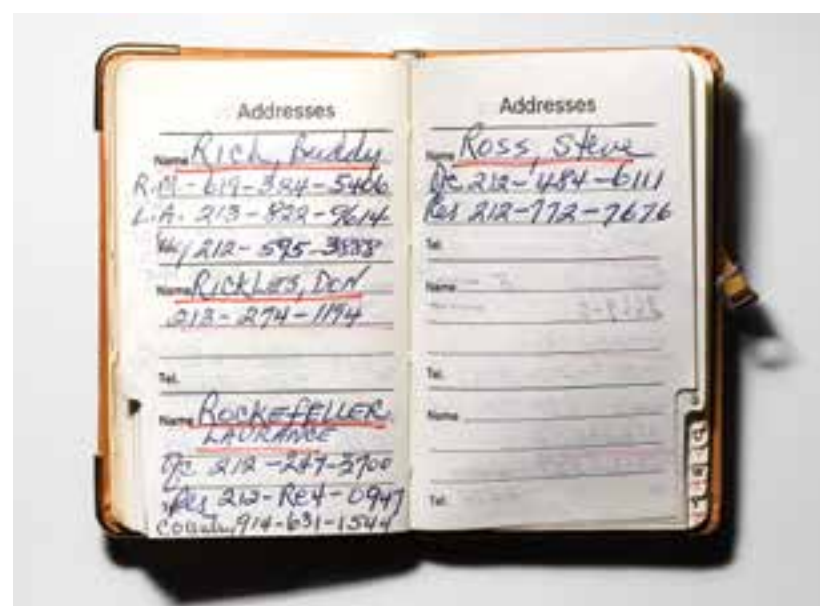 Addresses
Name Rich, Buddy
R.M - 619-384-5406
L.A. 213-822-9614
212-595-3888
Name RICKLES, DON
213-274-1194
Tel.
Name ROCKEFELLER
LAURANCE
Ofc 212-247-3700
Res 212-Re4-0947
County 914-631-1544
Addresses
Name Ross, Steve
Ofc 212-484-6111
Res 212-772-7676
Tel.
Name
Tel.
Name
Tel.